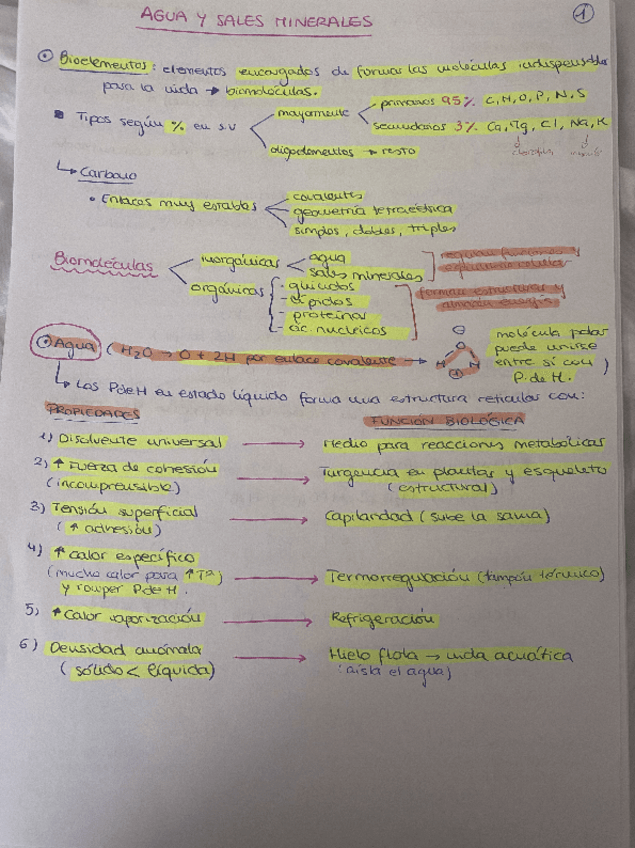 AGUA Y SALES MINERALES
1
Bioelementos: elementos encargados de formar las moléculas indispensables
para la vida → biomoléculas.
Tipos según % en s.v
mayormente
primarios 95% C, H, O, P, N, S
secundarios 3% Ca, Mg, Cl, Na, K
oligoelementos → resto
↳ Carbono
• Enlaces muy estables
covalentes
geometría tetraédrica
simples, dobles, triples
Biomoléculas
inorgánicas
agua
sales minerales
regulan funciones y
orgánicas
- glúcidos
- lípidos
- proteínas
- ác. nucleicos
forman estructuras y
almacén energía
Agua (H2O → O + 2H por enlace covalente →
O
H H
molécula polar
puede unirse
entre sí con
P. de H. )
↳ Los P de H en estado líquido forma una estructura reticular con:
PROPIEDADES
FUNCIÓN BIOLÓGICA
1) Disolvente universal → Medio para reacciones metabólicas
2) ↑ Fuerza de cohesión → Turgencia en plantas y esqueleto
(incompresible) (estructural)
3) Tensión superficial → Capilaridad (sube la savia)
(↑ adhesión)
4) ↑ calor específico
(mucho calor para ↑ Tª) → Termorregulación (tampón térmico)
y romper P de H.
5) ↑ calor vaporización → Refrigeración
6) Densidad anómala → Hielo flota → vida acuática
(sólido < líquida) (aisla el agua)